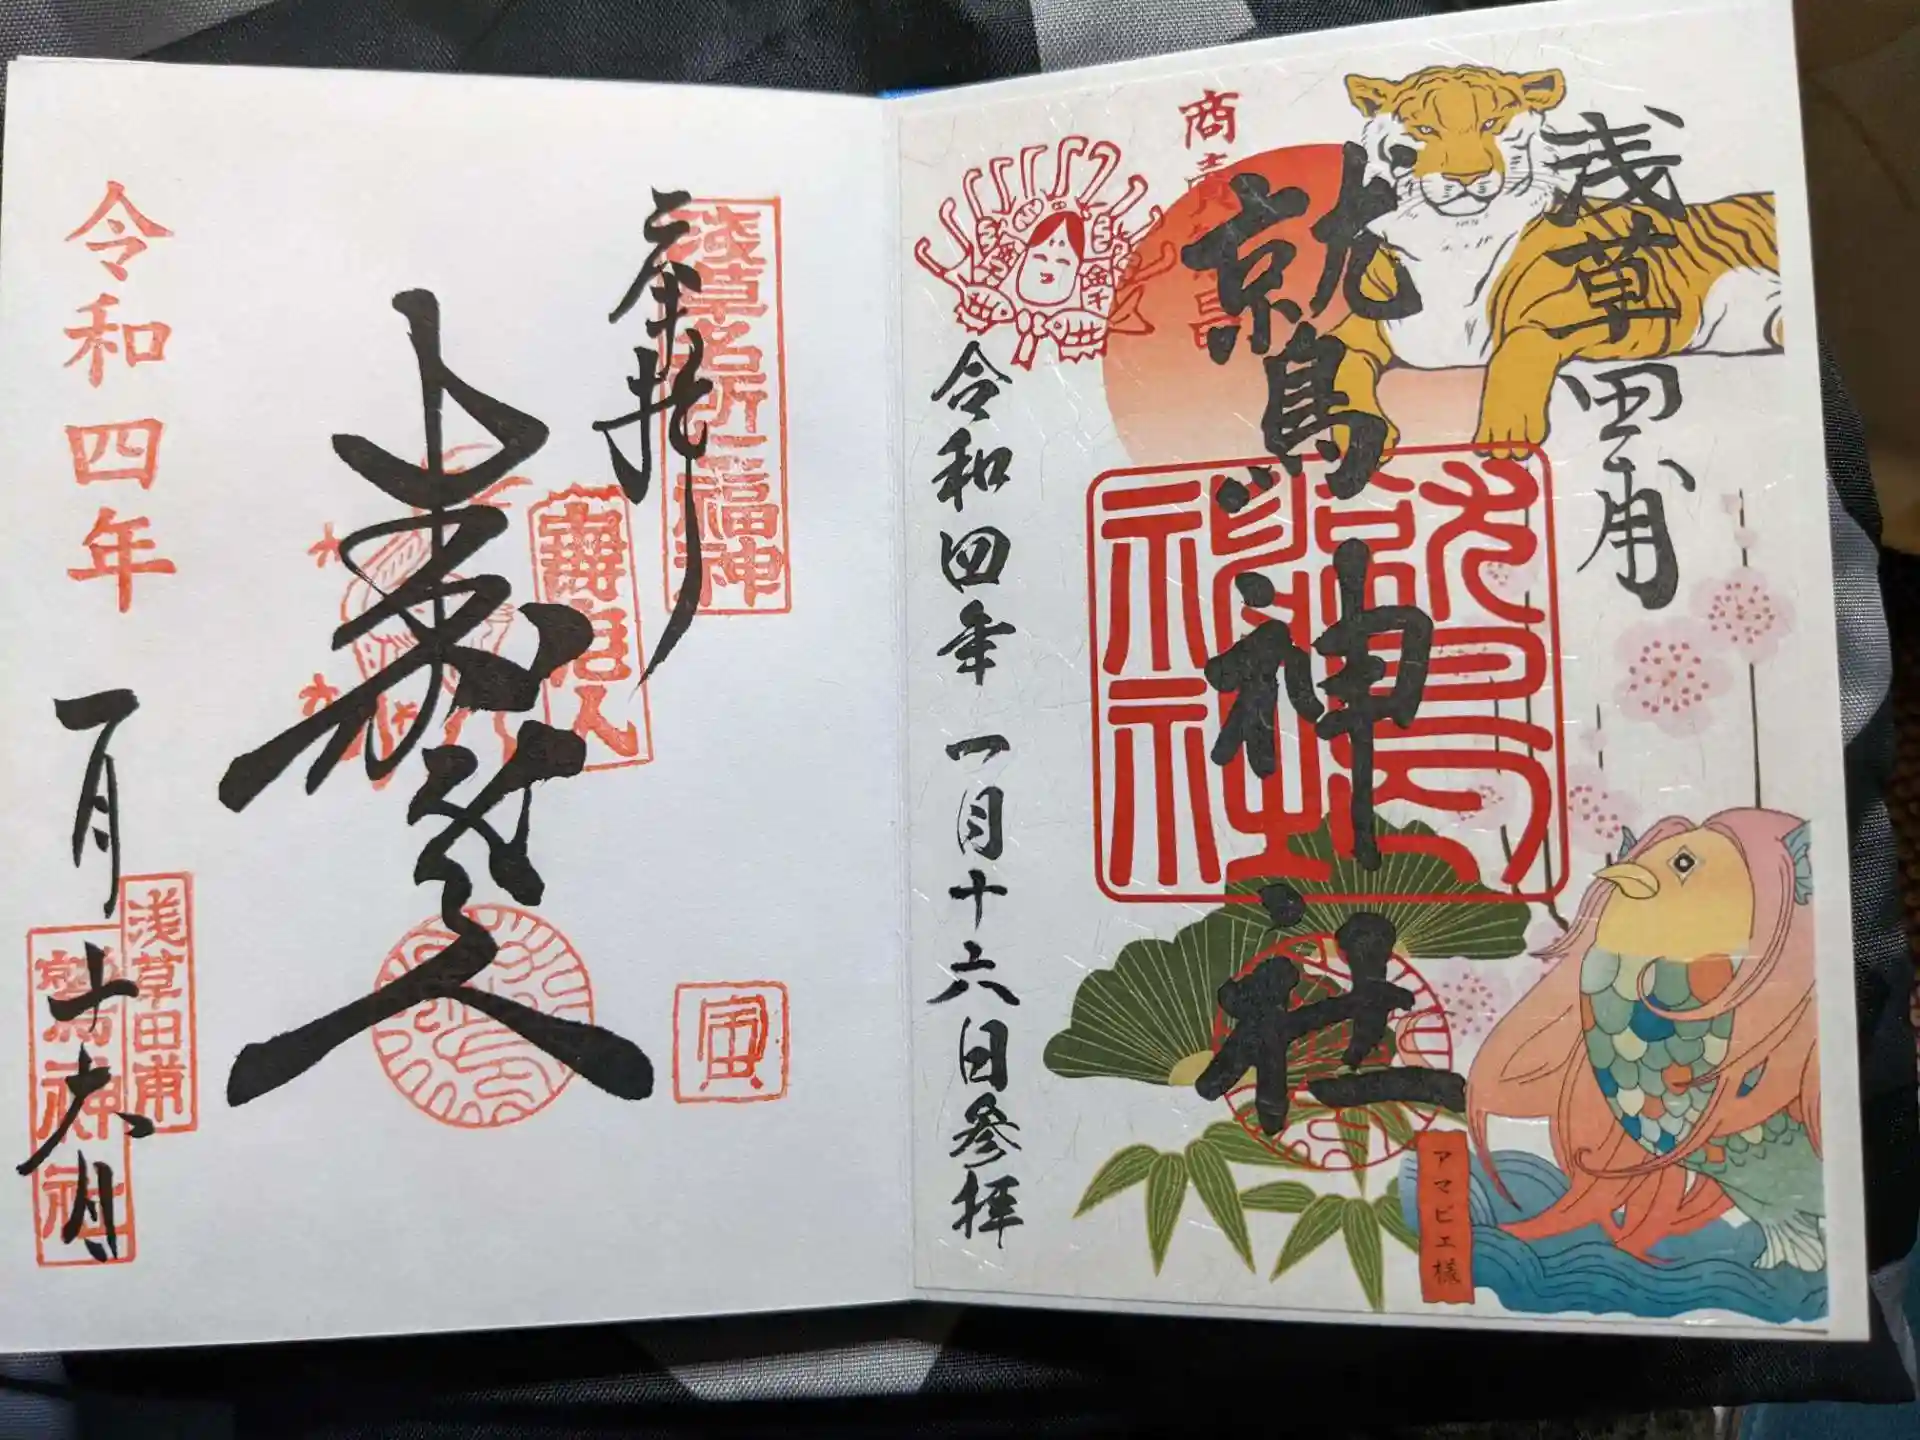 浅草田甫
商売繁昌
鷲神社
鷲神社
令和四年一月十六日参拝
アマビエ様
浅草名所七福神
奉拝
寿老人
寿老人
寅
令和四年
一月十六日
浅草田甫
鷲神社